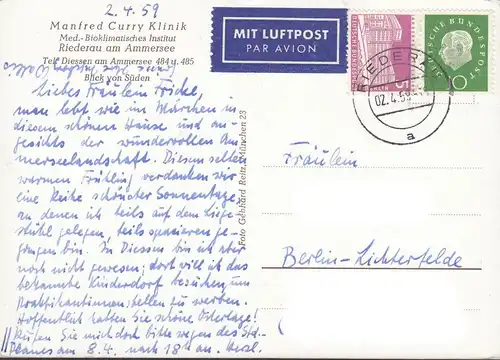 2.4.59
Manfred Curry Klinik
Med.-Bioklimatisches Institut
Riederau am Ammersee
Tel. Diessen am Ammersee 484 u. 485
Blick von Süden
MIT LUFTPOST
PAR AVION
DEUTSCHE BUNDESPOST
10
5
BERLIN
RIEDERAU
02.4.59
a
Liebes Fräulein
man lebt wie im Märchen in
diesem schönen Hause und an-
gesichts der wundervollen Am-
merseelandschaft. Diesem selten
warmen Frühling verdanken wir
eine Reihe schönster Sonnentage,
an denen ich teils auf dem Liege-
stuhl gelegen, teils spazieren ge-
gangen bin. In Diessen bin ich aber
noch nicht gewesen; dort will ich das
bekannte Kinderdorf besuchen, um
Praktikantinnenstellen zu werben.
Hoffentlich hatten Sie schöne Ostertage!
Rufen Sie mich doch bitte wegen des Std.
Planes am 8.4. nach 18 an. Herzl.
Foto Gebhard Reitz, München 23
Fräulein
Berlin-Lichterfelde